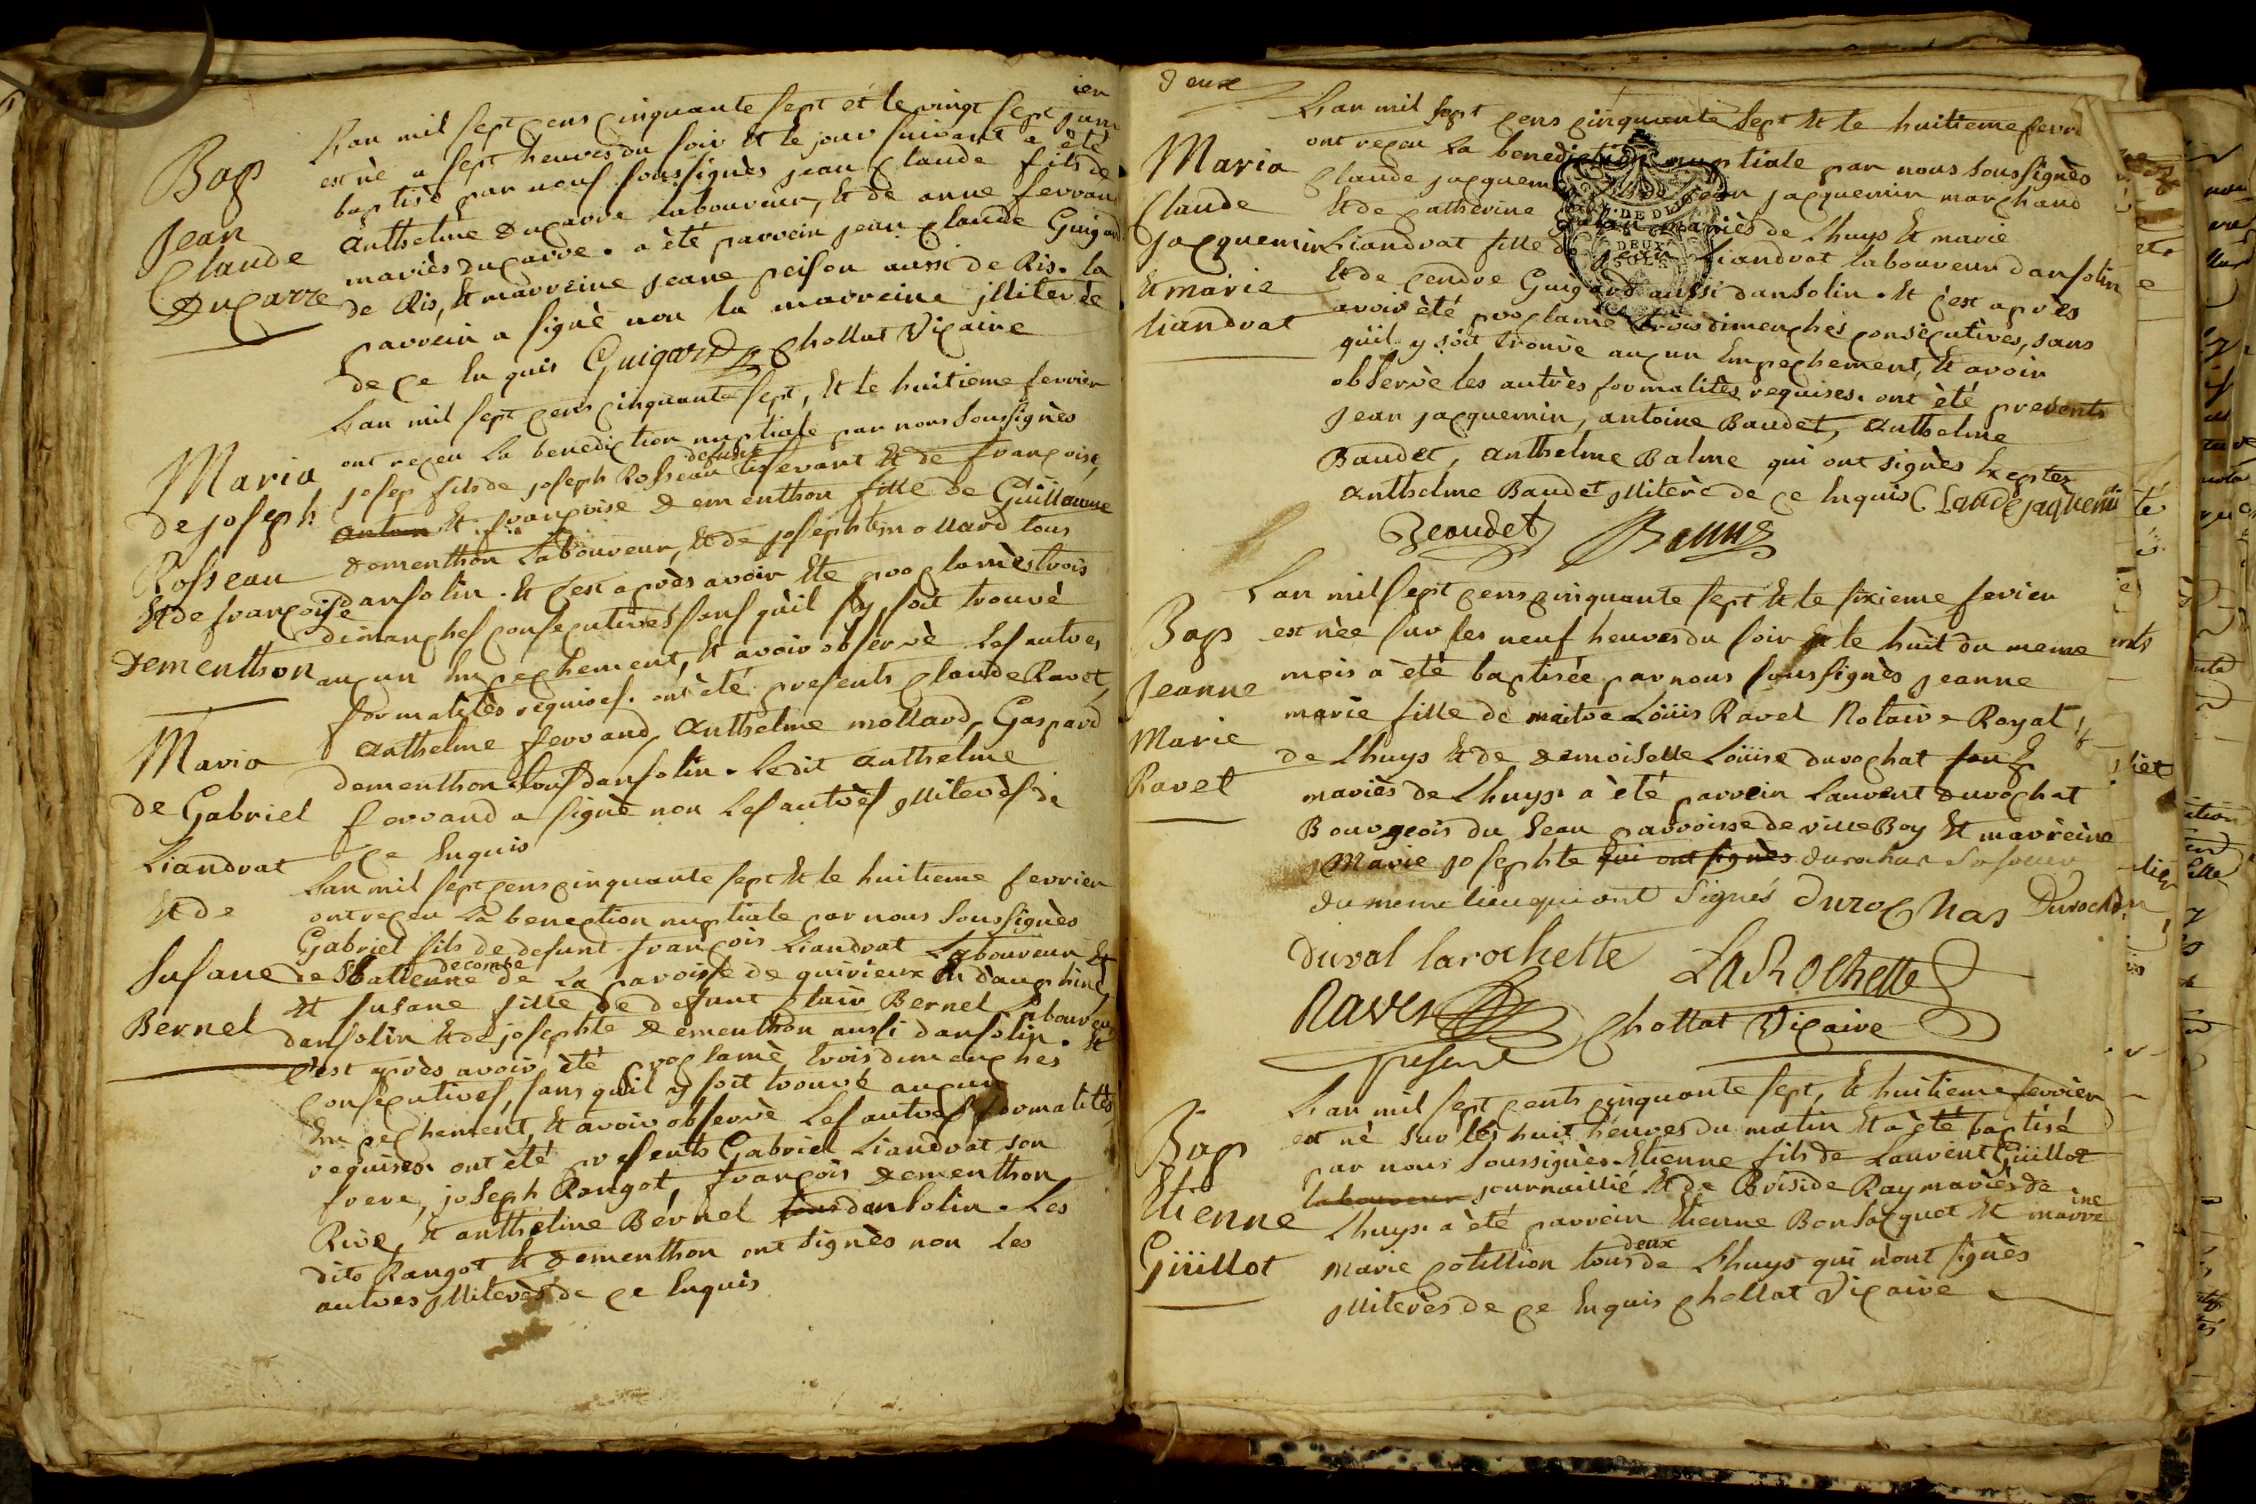 ier
Bap
Jean
Claude
Ducarre
L'an mil sept cens cinquante sept et le vingt sept janv
est né a sept heures du soir Et le jour suivant a été
baptisé par nous soussignès jean Claude fils de
Anthelme Ducarre laboureur, Et de anne ferrand
mariès Ducarre. a èté parrein jean Claude Guigard
de Ris, Et marreine jeane peisson aussi de Ris. la
parrein a signè non la marreine jlliterèe
de ce Enquis Guigard Chollat Vicaire
Maria
de joseph
Rosseau
Et de françoise
Dementhon
L'an mil sept cens cinquante sept, Et le huitieme fevrier
ont reçeu la benediction nuptiale par nous soussignès
defunt
josep fils de joseph Rosseau tisserant Et de françoise
Et françoise Dementhon fille de Guillaume
Dementhon Laboureur, Et de josephte mollard tous
dansolin. Et c'est après avoir Ete proclamès trois
dimanches consecutives sans qu'il s'y soit trouvè
aucun Empechement, Et avoir observè Les autres
formalitès requises. ont été presents claude Ravet,
Anthelme ferrand, Anthelme mollard, Gaspard
dementhon tous dansolin. Ledit Anthelme
ferrand a signè non Les autrès jlliterès de
ce Enquis
Maria
de Gabriel
Liandrat
Et de
Susane
Bernel
L'an mil sept cens cinquante sept Et le huitieme fevrier
ont reçeu La benection nuptiale par nous soussignès
Gabriel fils de defunt françois Liandrat Laboureur Et
decombe
de Statienne de La paroisse de quirieux En dauphinè
Et susane fille de defunt clair Bernel Laboureur
dansolin Et de josephte Dementhon aussi dansolin. Et
c'est après avoir èté proclamè trois dimenches
consecutives, sans qu'il y soit trouvè aucun
Empechement, Et avoir observè Les autrès formalitès
requises. ont èté presents Gabriel Liandrat son
frere, joseph Rangot, françois Dementhon
Rive, Et anthelme Bernel tous dansolin. Les
dits Rangot Et Dementhon ont signès non les
autres jlliterès de ce Enquis
Deux
Maria
Claude
jacquemin
Et marie
liandrat
L'an mil sept cens cinquante sept Et le huitieme fevri
ont reçeu la benediction nuptiale par nous soussignès
Claude jacquemin jacquemin marchand
Et de catherine mariès de Lhuys Et marie
Liandrat fille de Liandrat laboureur dansolin
Et de cendre Guigard aussi dansolin. Et c'est après
avoir èté proclamè trois dimenches consècutives, sans
qu'il y soit trouvè aucun Empechement, Et avoir
observè les autrès formalitès requises. ont èté presents
jean jacquemin, antoine Baudet, Anthelme
Baudet, Anthelme Balme qui ont signès Exeptez
Anthelme Baudet jlliterè de ce Enquis Claude jaquemin
Beaudet Balme
DEUX
Bap
Jeanne
Marie
Ravet
L'an mil sept cens cinquante sept Et le sixieme fevrier
est nèe sur les neuf heures du soir Et le huit du meme
mois a èté baptisèe par nous soussignès jeanne
marie fille de maitre Loüis Ravet Notaire Royal
de Lhuys Et de Demoiselle Loüise durochat
mariès de Lhuys. a èté parrein Laurent Durochat
Bourgeois du Seau parroisse de villeBoy Et marrèine
Marie josephte qui ont signès durochat sa soeur
du meme lieu qui ont signés Durochas Durochat
Duval larochette LaRochette
Ravet Chollat Vicaire
present
Bap
Etienne
Guillot
L'an mil sept cents cinquante sept, Et huitieme fevrier
est nè sur les huit heures du matin Et a èté baptisé
par nous soussignès Etienne fils de Laurent Guillot
laboureur journaillié Et de Briside Ray mariès de
Lhuys. a èté parrein Etienne Bonsacquet Et marreine
deux
marie cotillion tous de Lhuys qui n'ont signès
jlliterès de ce Enquis Chollat Vicaire